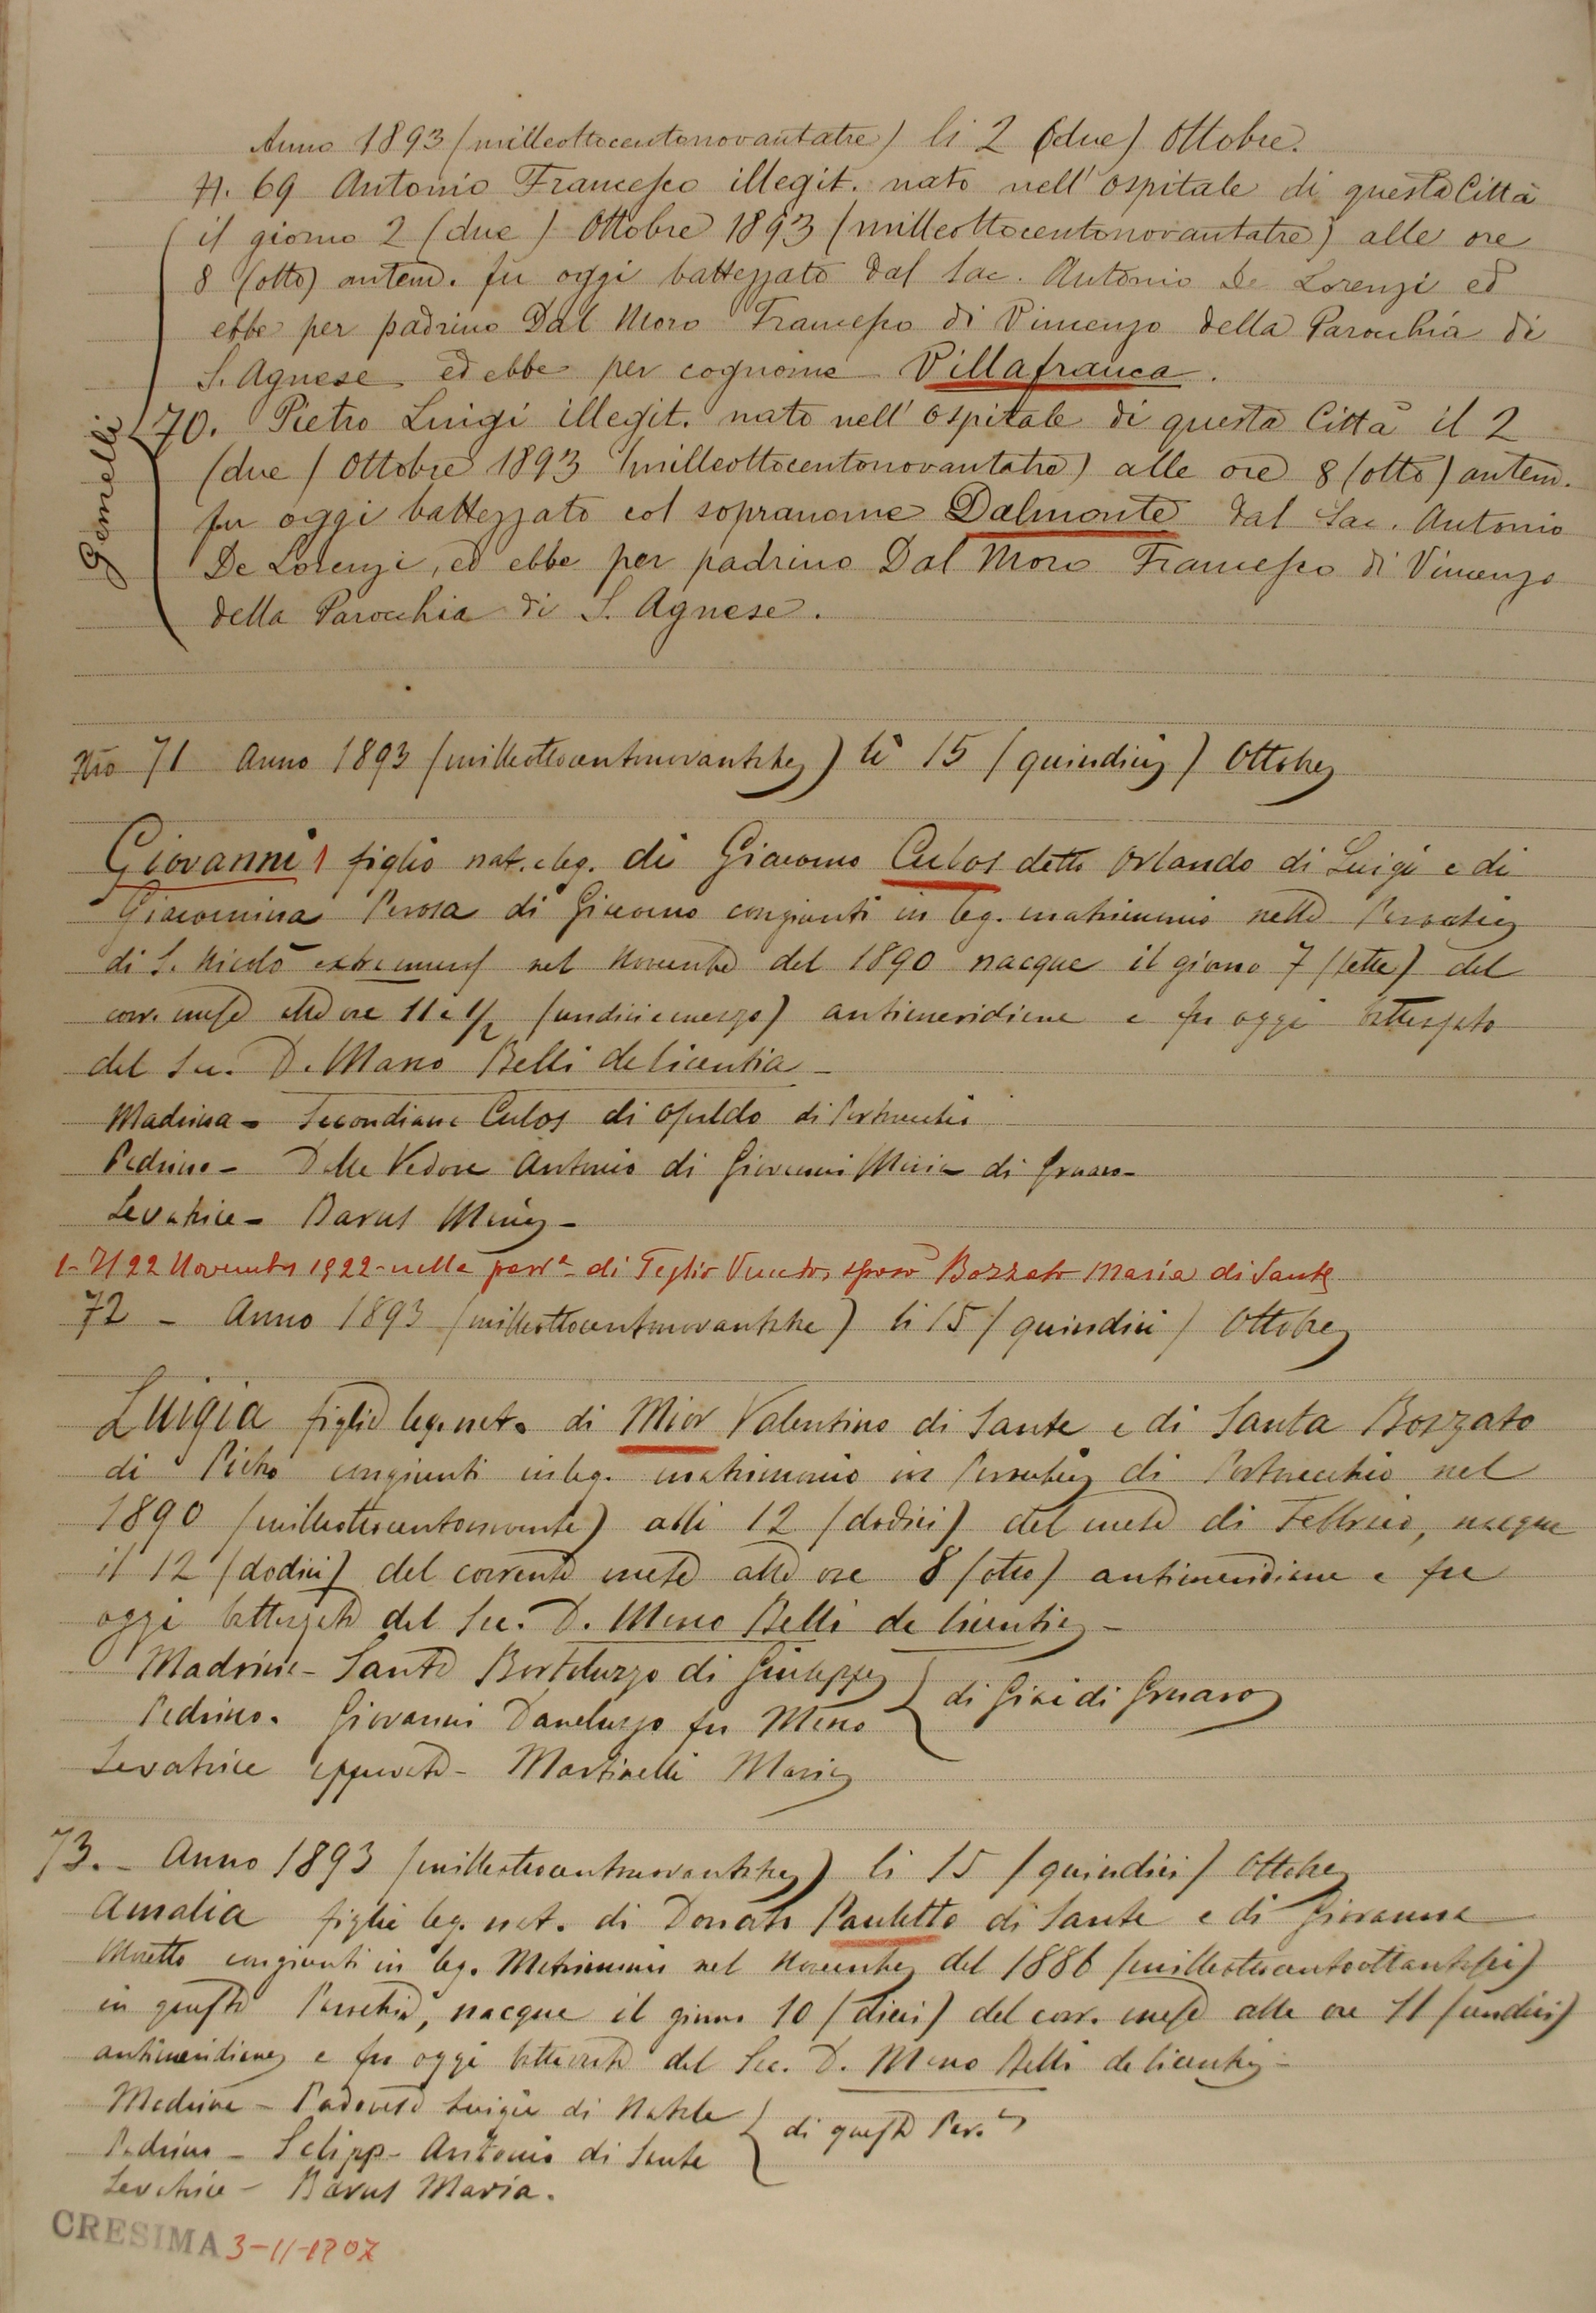 Anno 1893 (milleottocentonovantatre) li 2 (due) Ottobre.
N. 69 Antonio Francesco illegit. nato nell' ospitale di questa Città
il giorno 2 (due) Ottobre 1893 (milleottocentonovantatre) alle ore
8 (otto) antem. fu oggi battezzato dal Sac. Antonio De Lorenzi ed
ebbe per padrino Dal Moro Francesco di Vincenzo della Parocchia di
S. Agnese ed ebbe per cognome Villafranca.
Gemelli
70. Pietro Luigi illegit. nato nell' ospitale di questa Città il 2
(due) Ottobre 1893 (milleottocentonovantatre) alle ore 8 (otto) antem.
fu oggi battezzato col sopranome Dalmonte dal Sac. Antonio
De Lorenzi, ed ebbe per padrino Dal Moro Francesco di Vincenzo
della Parocchia di S. Agnese.
Nro 71 Anno 1893 (milleottocentonovantatre) li 15 (quindici) Ottobre
Giovanni 1 figlio nat. e leg. di Giacomo Culos detto Orlando di Luigi e di
Giacomina Perosa di Giacomo congiunti in leg. matrimonio nella Parrochia
di S. Nicolò extra muros nel Novembre del 1890 nacque il giorno 7 (sette) del
corr. mese alle ore 11 e 1/2 (undici e mezzo) antimeridiane e fu oggi battezzato
dal Sac. D. Marco Belli de licentia -
Madrina - Secondiana Culos di Osvaldo di Portovecchio
Padrino - Dalla Vedova Antonio di Giovanni Maria di Gruaro -
Levatrice - Barus Maria -
1 - Il 22 Novembre 1922 - nella parra di Teglio Veneto, sposò Bozzato Maria di Sante
72 - Anno 1893 (milleottocentonovantatre) li 15 (quindici) Ottobre
Luigia figlia leg. nat. di Mior Valentino di Sante e di Santa Bozzato
di Pietro congiunti in leg. matrimonio in Parrochia di Portovecchio nel
1890 (milleottocentonovanta) alli 12 (dodici) del mese di Febbraio, nacque
il 12 (dodici) del corrente mese alle ore 8 (otto) antimeridiane e fu
oggi battezzata dal Sac. D. Marco Belli de licentia -
Madrina - Santa Bortoluzzo di Giuseppe
Padrino. Giovanni Daneluzzo fu Marco
di Giai di Gruaro
Levatrice approvata - Martinelli Maria
73. - Anno 1893 (milleottocentonovantatre) li 15 (quindici) Ottobre
Amalia figlia leg. nat. di Donato Pauletto di Sante e di Giovanna
Moretto congiunti in leg. Matrimonio nel Novembre del 1886 (milleottocentoottantasei)
in questa Parrochia, nacque il giorno 10 (dieci) del corr. mese alle ore 11 (undici)
antimeridiane e fu oggi battezzata dal Sac. D. Marco Belli de licentia -
Madrina - Padovese Luigia di Natale
Padrino - Selipp - Antonio di Sante
di questa Parra
Levatrice - Barus Maria.
CRESIMA 3-11-1907